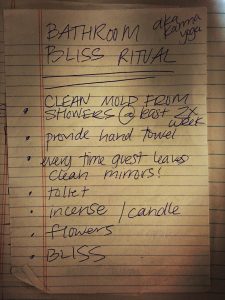 BATHROOM
BLISS RITUAL
aka
karma
yoga
• CLEAN MOLD FROM
SHOWERS @ least 2x
week
• provide hand towel
• every time guest leaves
clean mirrors!
• toilet
• incense / candle
• flowers
• BLISS